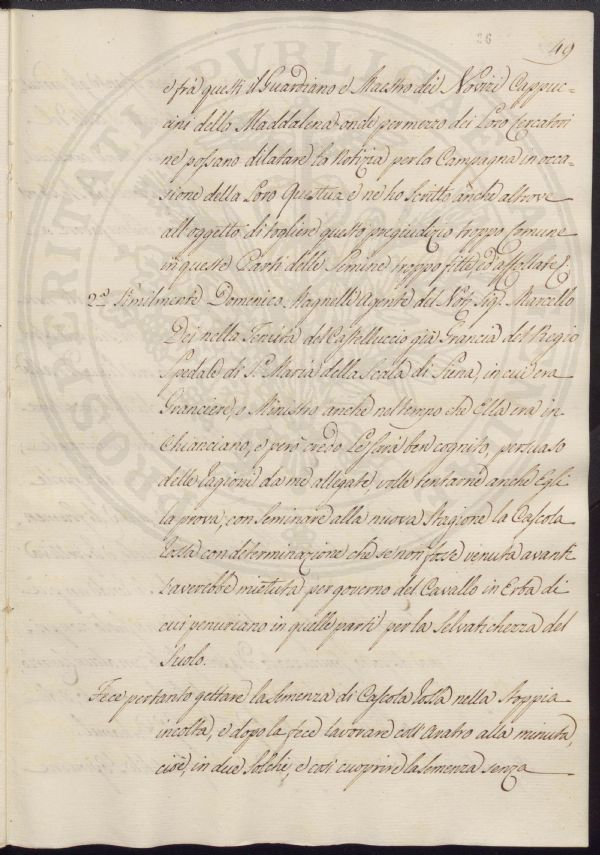 26
49
e frà questi il Guardiano e Maestro dei Novizi Cappuc-
cini della Maddalena onde per mezzo dei Loro Cercatori
ne possano dilatare la Notizia per la Campagna in occa-
sione della Loro Questua e ne ho scritto anche altrove
all'oggetto di togliere questo pregiudizio troppo Comune
in queste Parti delle Semine troppo fitte, ed affollate.
2.° Similmente Domenico Magnelli Agente del Nob. Sig.r Marcello
Dei nella Tenuta del Castelluccio già Grancia del Regio
Spedale di S.ta Maria della Scala di Siena, in cui era
Granciere, o Ministro anche nel tempo che Ella era in
Chianciano, e però credo Le sarà ben cognito, persuaso
delle ragioni da me allegate volle tentarne anche Egli
la prova, con seminare alla nuova Stagione la Cascola
Rossa con determinazione che se non fosse venuta avanti
l'averebbe mietuta per governo del Cavallo in Erba di
cui penuriano in quelle parti per la selvatichezza del
Suolo.
Fece pertanto gettare la semenza di Cascola Rossa nella Stoppia
incolta, e dopo la fece lavorare coll'Aratro alla minuta,
cioè, in due Solchi, e così cuoprire la semenza senza
PUBLICAE
POSTERITATI